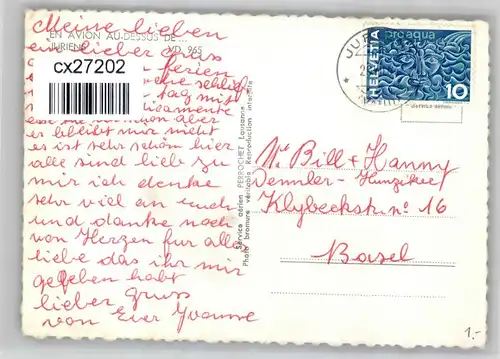 EN AVION AU-DESSUS DE ...
JURIENS VD 965
Meine lieben
ein lieber Gruss
ferien
cx27202
schlief
tag mit
aber
es bleibt mir nicht
es ist sehr schön hier
alle sind lieb zu
mir ich denke
sehr viel an euch
und danke noch
von Herzen für alles
liebe das ihr mir
gegeben habt
lieber gruss
von Euer Yvonne
Service aérien PERROCHET Lausanne
Photo bromure véritable Reproduction interdite
JU
HELVETIA
pro aqua
10
Mr Bill + Hanny
Demmler - Hunziker
Klybeckstr. No 16
Basel
1.-